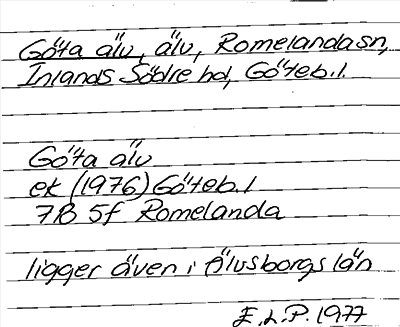 Göta älv, älv, Romelanda sn,
Inlands Södre hd, Göteb. l.
Göta älv
ek (1976) Göteb. l
7B 5f Romelanda
ligger även i Älvsborgs län
E.L.P. 1977